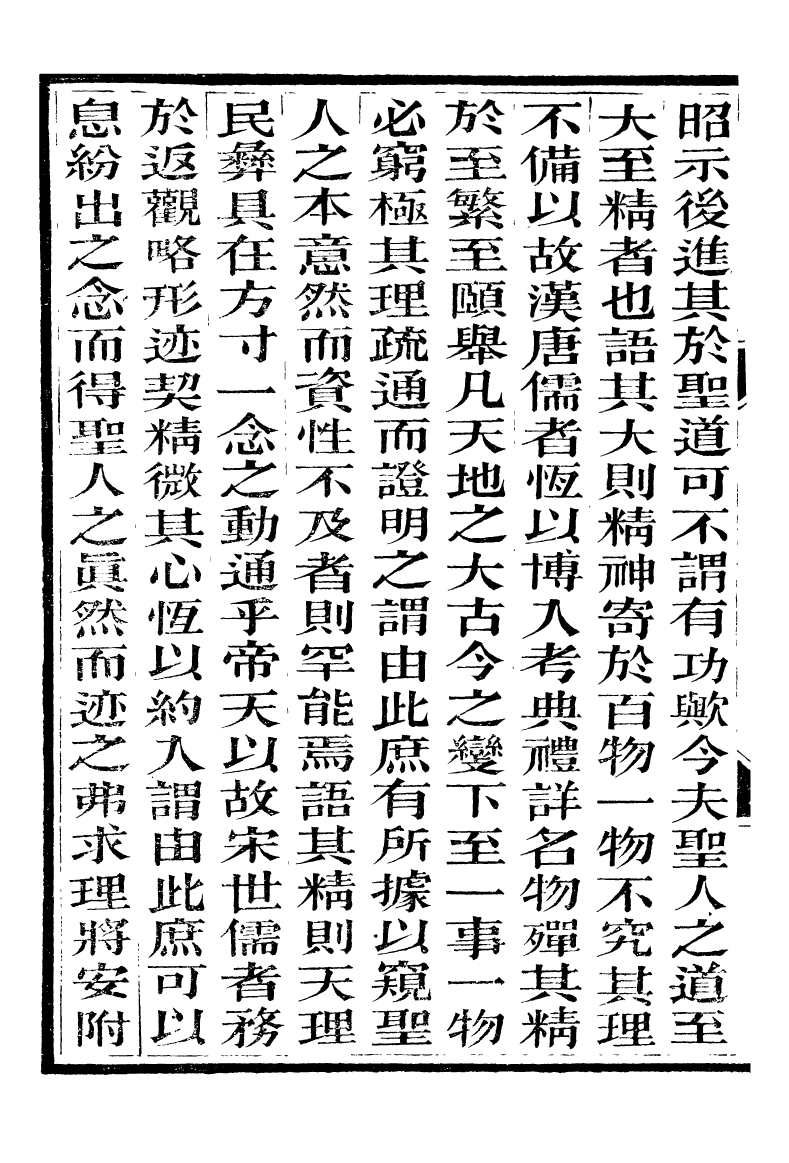 昭示後進其於聖道可不謂有功歟今夫聖人之道至
大至精者也語其大則精神寄於百物一物不究其理
不備以故漢唐儒者恆以博入考典禮詳名物殫其精
於至繁至賾舉凡天地之大古今之變下至一事一物
必窮極其理疏通而證明之謂由此庶有所據以窺聖
人之本意然而資性不及者則罕能焉語其精則天理
民彝具在方寸一念之動通乎帝天以故宋世儒者務
於返觀略形迹契精微其心恆以約入謂由此庶可以
息紛出之念而得聖人之眞然而迹之弗求理將安附